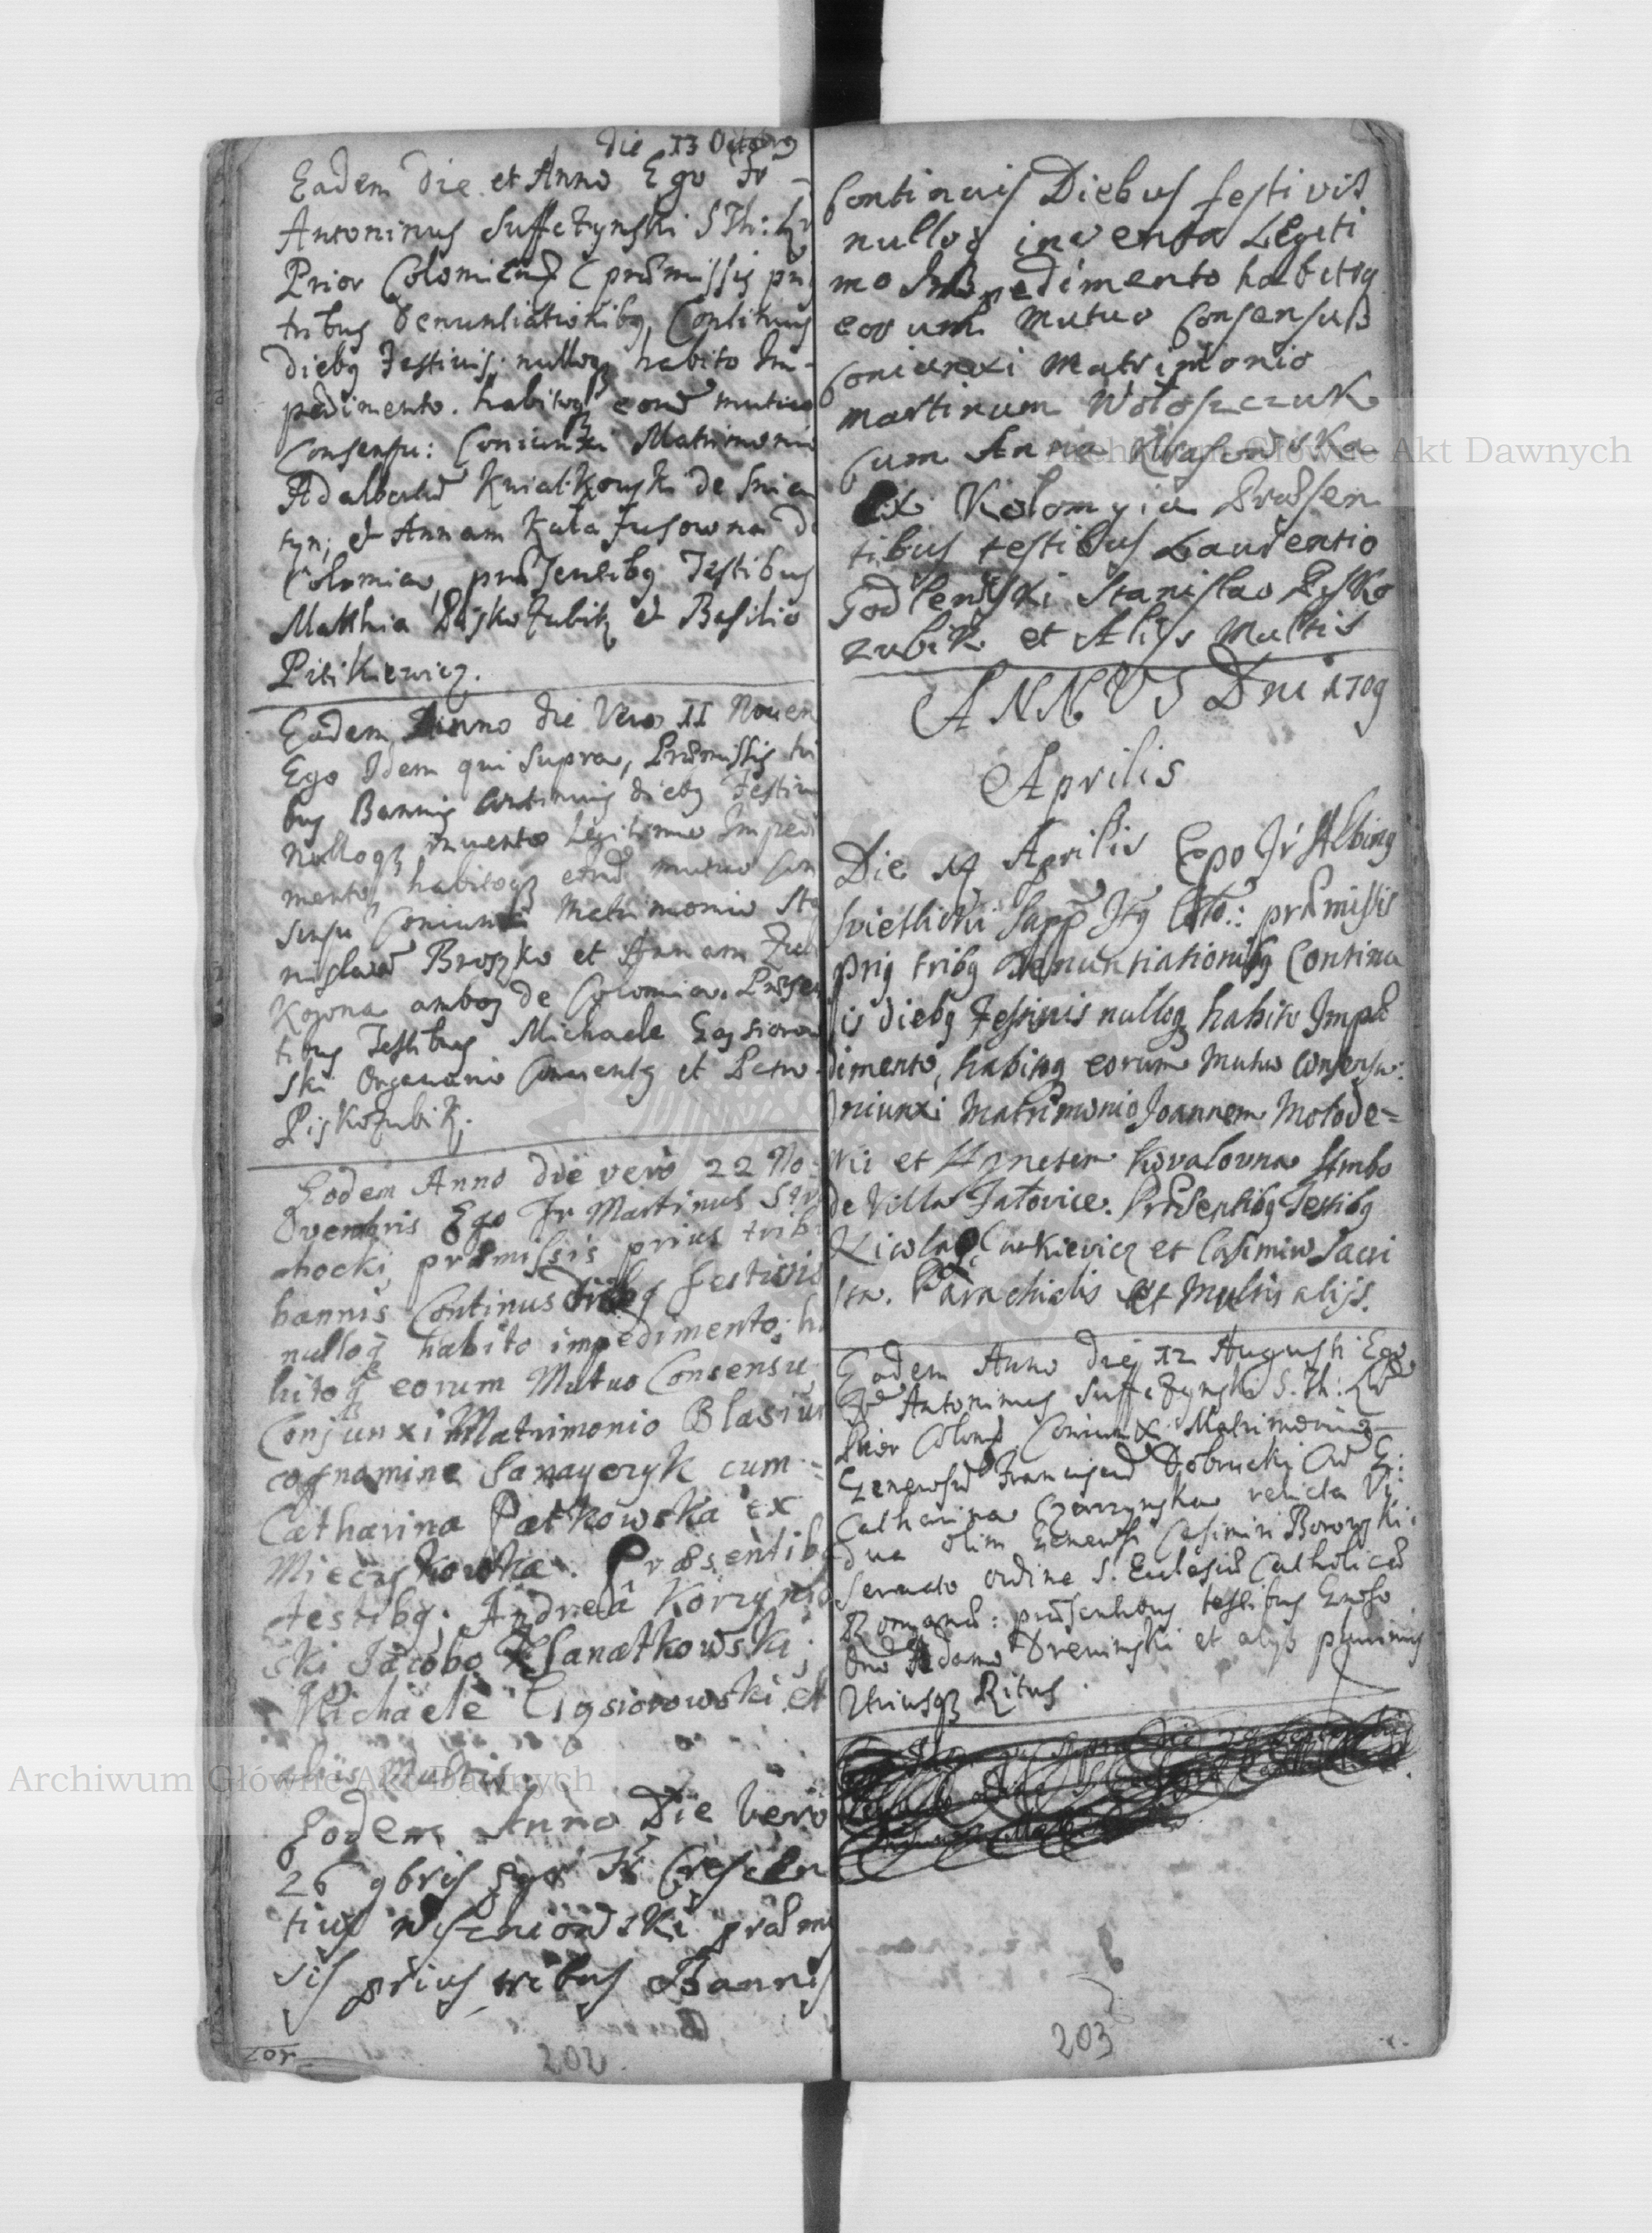 die 13 Octobris
Eadem die et Anno Ego Fr
Antoninus Suffczynski S Th: Lr
Prior Colomien
tribus denuntiationibq Continuis
diebq Festiuis, nulloqz habito Im-
pedimento. habitoqz eorum mutuo
Consensu: Coniunxi Matrimonio
Adalbertum Kwiatkowski de Snia
tyn; et Annam
Colomia, præsentibq Testibus
Matthia Piskozubik et Basilio
Pitikiewicz.
Eadem Anno die Vero 11 Nouem
Ego Idem qui Supra, Præmissis tri
bus Bannis Continuis diebq Festiui
Nulloqz inuento Legitimo Impedi
mento, habitoqz eorum mutuo Con
sensu Coniunxi Matrimonio Sta
nislaum Broszko et Annam
ambos de Colomia. Præsen
tibus Testibus Michaele Gąsiorow
ski Organario Conuentq et Petro
Piskozubik;
Eodem Anno die vero 22 No
vembris Ego Fr Martinus
chocki, præmissis prius tribq
bannis Continuis Diebq festivis
nulloq habito impedimento; ha
bitoq eorum Mutuo Consensu
Conjunxi Matrimonio Blasium
cognomine Sanayczyk cum
Catharina Patkowska ex
Præsentibq
testibq; Andreâ Korzyns
ski Jacobo
Michaele Gąsiorowski et
aliis Multis
Eodem Anno Die vero
26 9bris Ego Fr Crescen
tius Wiszniowski præmis
sis prius tribus Bannis
201
202
Continuis Diebus festivis
nulloq invento Legiti
mo Impedimento habitoq
eorum Mutuo Consensu
Coniunxi Matrimonio
Martinum Wołoszczuk
cum Anna
ex Kolomyia Præsen
tibus testibus Laurentio
Godlewski Stanislao Pisko
zubik et Alijs Multis
ANNUS Dni 1709
Aprilis
Die 14 Aprilis Ego Fr Albinq
Svietlicki præmissis
priq tribq Denuntiationibq Continu
is diebq Festiuis nulloq habito Impe
dimento, habitoq eorum Mutuo Consensu:
Coniunxi Matrimonio Joannem Motode=
cki et Agnetem Kovalovna Ambo
de Villa Jatovice. Præsentibq Testibq
Nicolao Cackievicz et Casimiro Sacri
sta. Parachialis et Multis alijs.
Eodem Anno die 12 Augusti Ego
Fr Antoninus Suffczynski S. Th: Lr
Prior Colom Coniunxi Matrimonio
Generosum Franciscum Dobrucki Cum G:
Catharina Czarzynska relicta Vi:
dua olim Generosi Casimiri Borowski:
Seruato ordine S. Eclesiæ Catholicæ
Romanæ: præsentibus testibus Gnroso
Dno Adamo Drewinski et alijs plurimis
Utriusqz Ritus
203
Archiwum Główne Akt Dawnych
Archiwum Główne Akt Dawnych